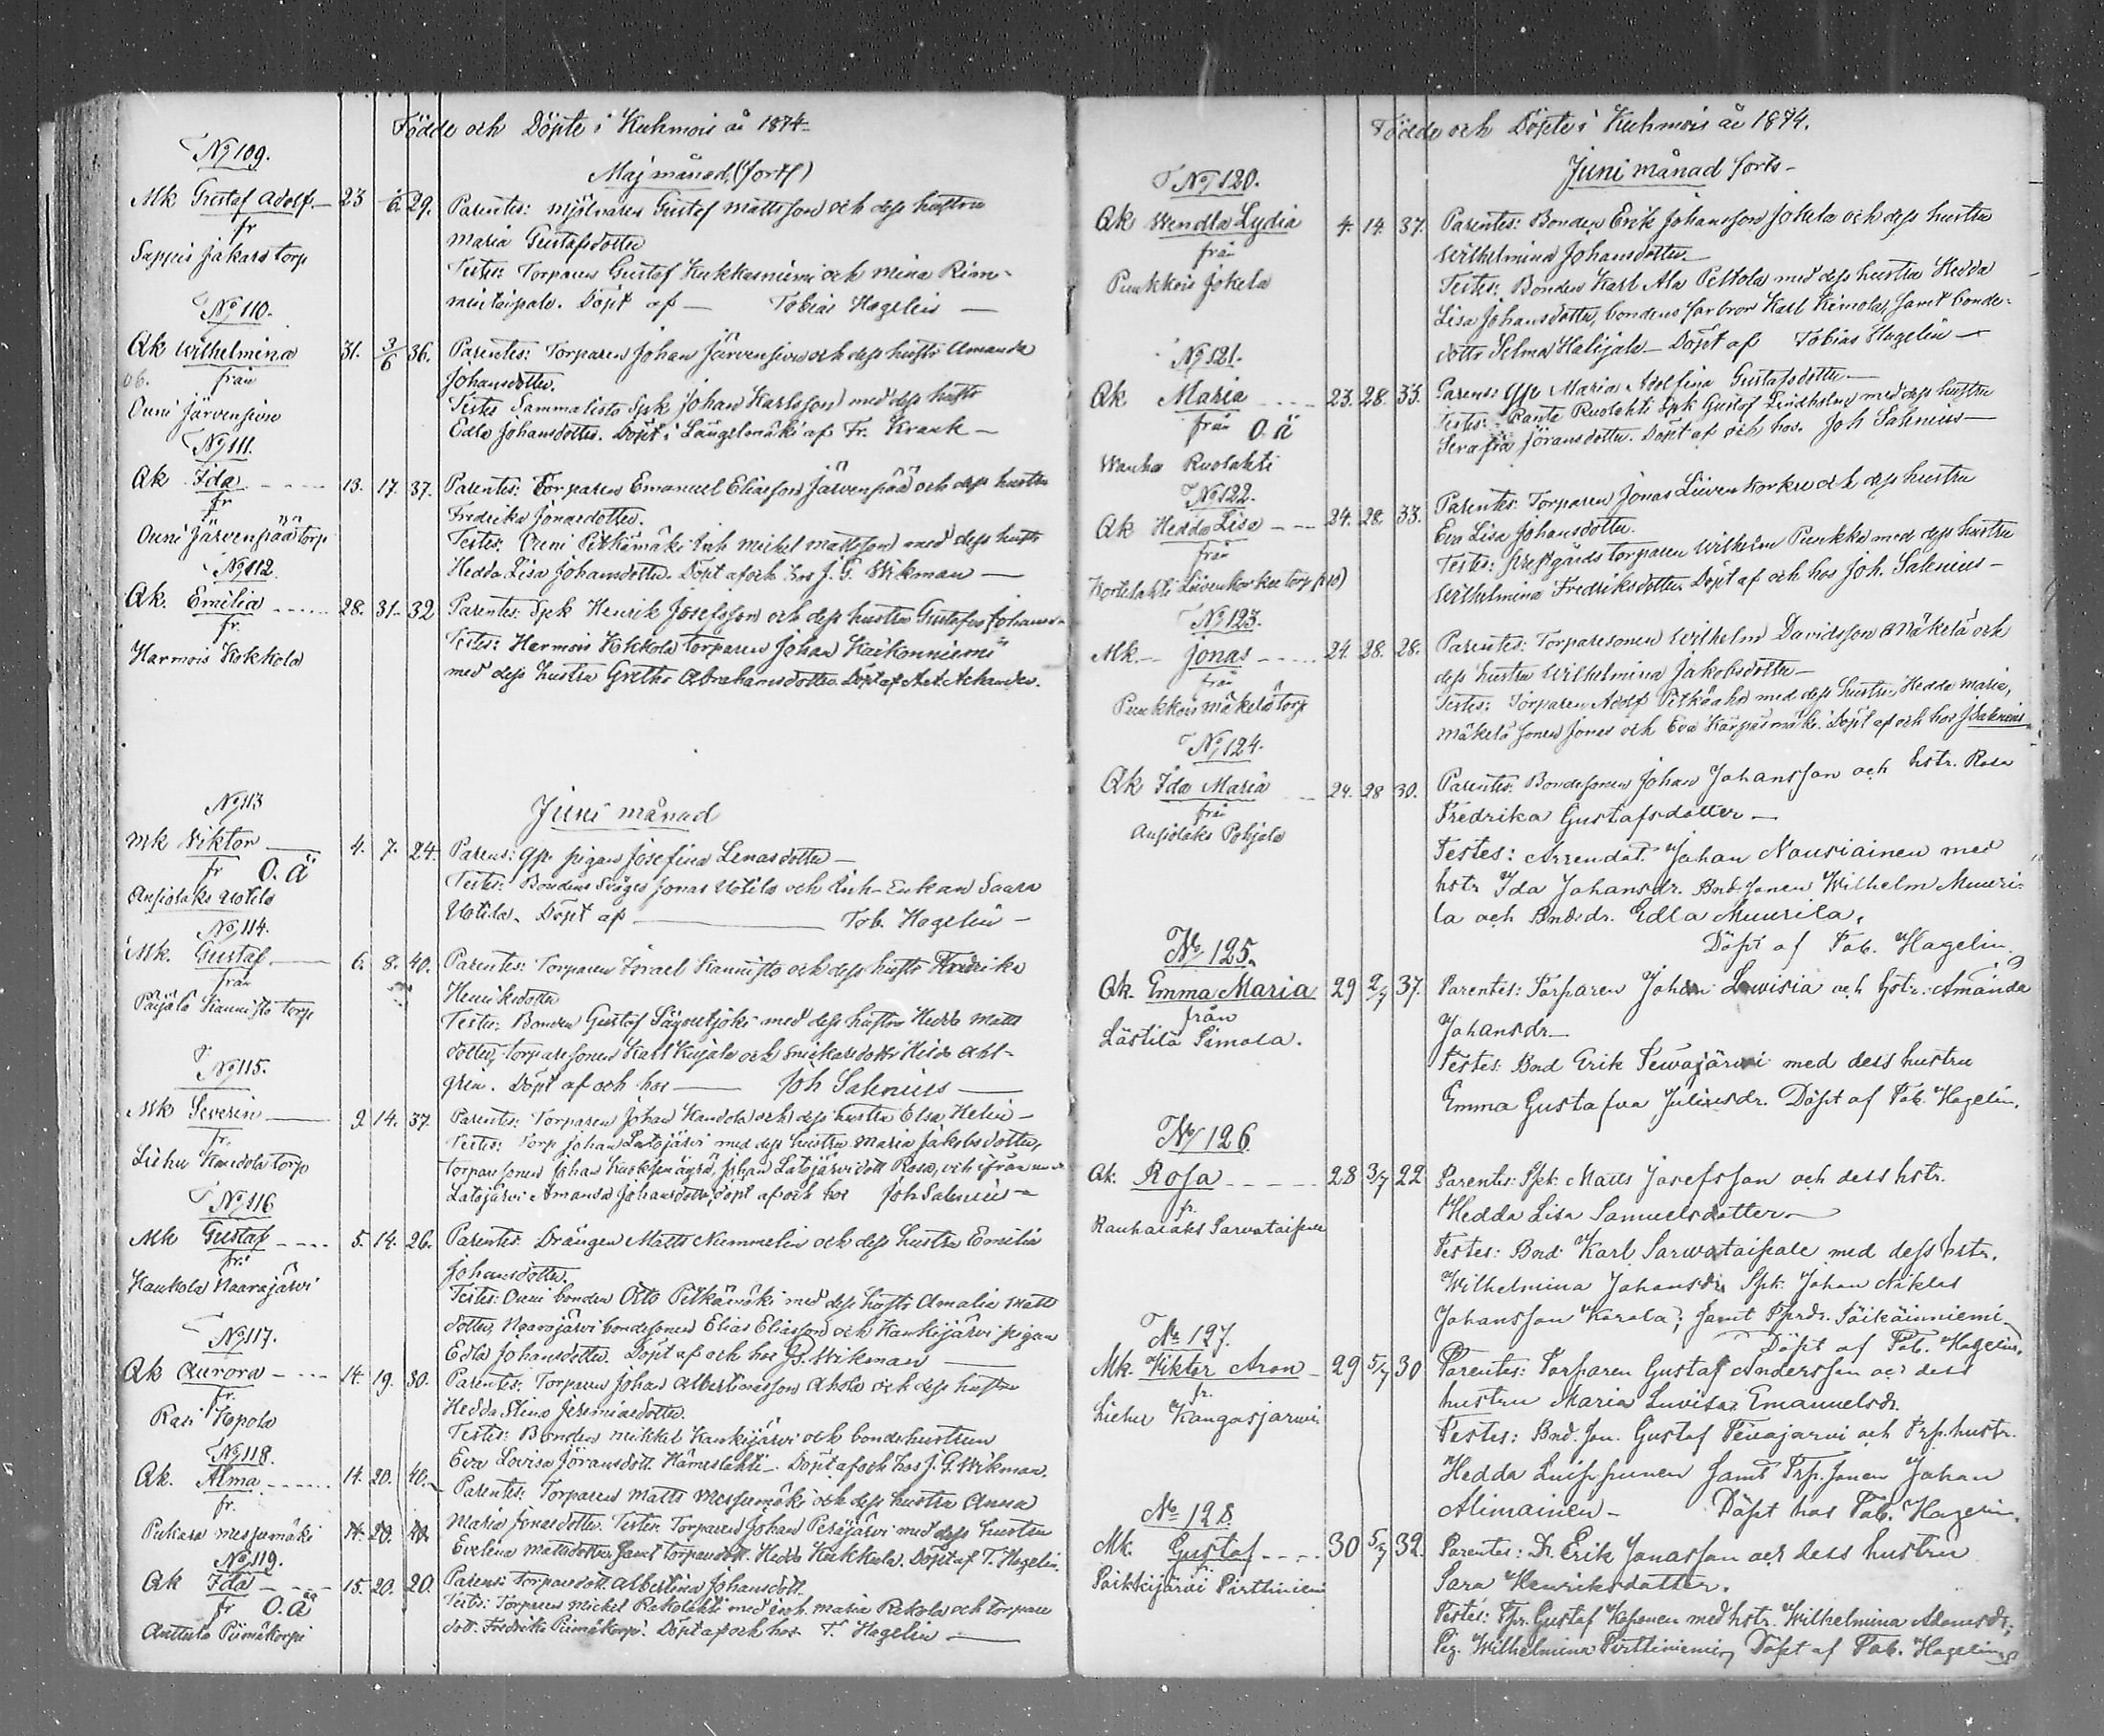 Födde och Döpte i Kuhmois år 1874.
Maj månad, (forts)
No 109.
Mk Gustaf Adolf 23 6. 29.
fr
Sappis Jakars torp
Parentes: Mjölnaren Gustaf Mattsson och dess hustru
Maria Gustafsdotter
Testes: Torparen Gustaf Kukkasniemi och Mina Rim-
mintaipale. Döpt af — Tobias Hagelin —
No 110.
Qk Wilhelmina 31. 3/6 36.
ob. från
Ouni Järvensivu
Parentes: Torparen Johan Järvensivu och dess hustr Amanda
Johansdotter.
Testes Sammalisto Spk Johan Karlsson med dess hustr
Edla Johansdotter. Döpt i Längelmäki af Fr. Krank —
No 111.
Qk Ida 13. 17. 37.
fr
Ouni Järvenpää torp
Parentes: Torparen Emanuel Eliasson Järvenpää och dess hustru
Fredrika Jonasdotter.
Testes: Ouni Pitkämäki Inh Mickel Mattsson med dess hustr
Hedda Lisa Johansdotter. Döpt af och hos J. G. Wikman —
No 112.
Qk. Emilia 28. 31. 32
fr.
Harmois Kokkola
Parentes: Spk Henrik Josefsson och dess hustru Gustafva Johansd.
Testes: Harmois Kokkola torparen Johan Kaikonniemi
med dess hustru Gretha Abrahamsdotter. Döpt af
Juni månad
No 113
Mk Viktor 4. 7. 24.
fr O. Ä
Ansiolaks Uotila
Parens: Qsp. pigan Josefina Lenasdotter —
Testes: Bondens Svåger Jonas Uotila och Inh- Enkan Saara
Uotila. Döpt af — Tob. Hagelin —
No 114.
Mk. Gustaf 6. 8. 40.
från
Päijälä Kannisto torp
Parentes: Torparen Israel Kannisto och dess hustr Fredrika
Henriksdotter
Testes: Bonden Gustaf Säynetjoki med dess hustru Hedda Matts
dotter, torpare sonen Karl Kujala och snickaredottr Hilda Ahl-
gren. Döpt af och hos — Joh Salenius —
No 115.
Mk Severin 9 14. 37.
fr.
Lichu Kandola torp
Parentes: Torparen Johan Kandola och dess hustru Elsa Helin —
Testes: Torp. Johan Latojärvi med dess hustru Maria Jakobsdotter,
torparesonen Johan Johan Latojärvi dott Rosa, och
Latojärvi Amanda Johansdotter, döpt af och hos Joh Salenius —
No 116
Mk Gustaf 5. 14. 26.
fr.
Kaukola Naarajärvi
Parentes: Drängen Matts Nummelin och dess hustru Emilia
Johansdotter.
Testes: Ouni bonden Otto Pitkämäki med dess hustr Amalia Matts
dotter, Naarajärvi bondesonen Elias Eliasson och Kankijärvi pigan
Edla Johansdotter. Döpt af och hos Wikman —
No 117.
Qk Aurora 14. 19. 30.
fr.
Rasi Kepola
Parentes: Torparen Johan Albertinesson Ahola och dess hustru
Hedda Stina Jeremiaedotter.
Testes: Bonden Mikkel Kankijärvi och bondehustrun
Eva Lovisa Jöransdott. Hämeslahti. Döpt af och hos J. G. Wikman.
No 118.
Qk. Alma 14. 20. 40.
fr.
Pukara Messumäki 14. 20. 40.
Parentes: Torparen Matts Messumäki och dess hustru Anna
Maria Jonasdotter. Testes: Torparen Johan Peräjärvi med dess hustru
Evelina Mattsdotter, samt torparedott. Hedda Kukkula. Döpt af T. Hagelin.
No 119.
Qk Ida 15. 20. 20.
fr O. Ä
Anttula Piimäkorpi
Parens: Torparedott. Albertina Johansdott.
Testes: Torparen Mickel Rakolahti med inh. Maria Rekola och torpare
dott. Fredrika Piimäkorpi. Döpt af och hos T. Hagelin —
Födde och Döpte i Kuhmois år 1874.
Juni månad forts —
No 120.
Qk Wendla Lydia 4. 14. 37.
från
Puukkois Jokela
Parentes: Bonden Erik Johansson Jokela och dess hustru
Wilhelmina Johansdotter —
Testes: Bonden Karl Ala Peltola med dess hustru Hedda
Lisa Johansdotter, bondens farbror Karl Keinola, samt bonde-
dottr Selma Halijala — Döpt af Tobias Hagelin —
No 121.
Qk Maria 23. 28. 33.
från O. Ä
Wanha Ruolahti
Parens: Qsp Maria Adolfina Gustafsdotter —
Testes: Ranta Ruolahti Spk Gustaf Lindholm med dess hustru
Serafia Jöransdotter. Döpt af och hos. Joh Salenius —
No 122.
Qk Hedda Lisa 24. 28. 33.
från
Kortelahti Liivenkorkee torp
Parentes: Torparen Jonas Liiven Korkee och dess hustru
Eva Lisa Johansdotter.
Testes: prestgårds torparen Wilhelm Puukka med dess hustru
Wilhelmina Fredriksdotter. Döpt af och hos Joh. Salenius —
No 123.
Mk. Jonas 24. 28. 28.
från
Puukkois Mäkelä torp
Parentes: Torparesonen Wilhelm Davidsson Mäkelä och
dess hustru Wilhelmina Jakobsdotter —
Testes: Torparen Adolf Pitkäaho med dess hustru Hedda Maria,
Mäkelä sonen Jonas och Eva Kärpäsmäki. Döpt af och hos J Salenius
No 124.
Qk Ida Maria 24. 28 30.
från
Ansiolaks Pohjola
Parentes: Bondesonen Johan Johansson och hstr. Rosa
Fredrika Gustafsdotter —
Testes: Arrendat. Johan Nousiainen med
hstr Ida Johansdr. Bond.sonen Wilhelm Muuri-
la och Bndsdr. Edla Muurila,
Döpt af Tob. Hagelin
No 125.
Qk. Emma Maria 29 2/7 37.
från
Lästilä Simola.
Parentes: Torparen Johan Lovisia och hstr. Amanda
Johansdr —
Testes: Bond Erik Tewajärwi med dess hustru
Emma Gustafva Juliusdr. Döpt af Tob. Hagelin.
No 126
Qk. Rosa 28 3/7 22
fr.
Rauhalaks Sarvataipale
Parentes: Spk. Matts Josefsson och dess hstr.
Hedda Lisa Samuelsdotter —
Testes: Bond: Karl Sarwataipale med dess hstr.
Wilhelmina Johansdr, Spk. Johan Niklas
Johansson Karala, samt Tprdr. Säikäinniemi
Döpt af Tob. Hagelin.
No 127.
Mk. Viktor Aron 29 5/7 30
fr.
Lichu Kangasjärwi
Parentes: Torparen Gustaf Andersson och dess
hustru Maria Luvisa Emanuelsdr.
Testes: Bnd. son. Gustaf Tewajarwi och Trp. hustr.
Hedda Luippunen samt Trp. sonen Johan
Alimainen — Döpt hos Tob. Hagelin.
No 128.
Mk. Gustaf 30 5/7 32.
fr.
Päikkijärvi Pirttiniemi
Parentes: Dr. Erik Jonasson och dess hustru
Sara Henriksdotter.
Testes: Tpr. Gustaf Koponen med hstr. Wilhelmina Adamsdr.;
Pig. Wilhelmina Pirttiniemi, Döpt af Tob. Hagelin